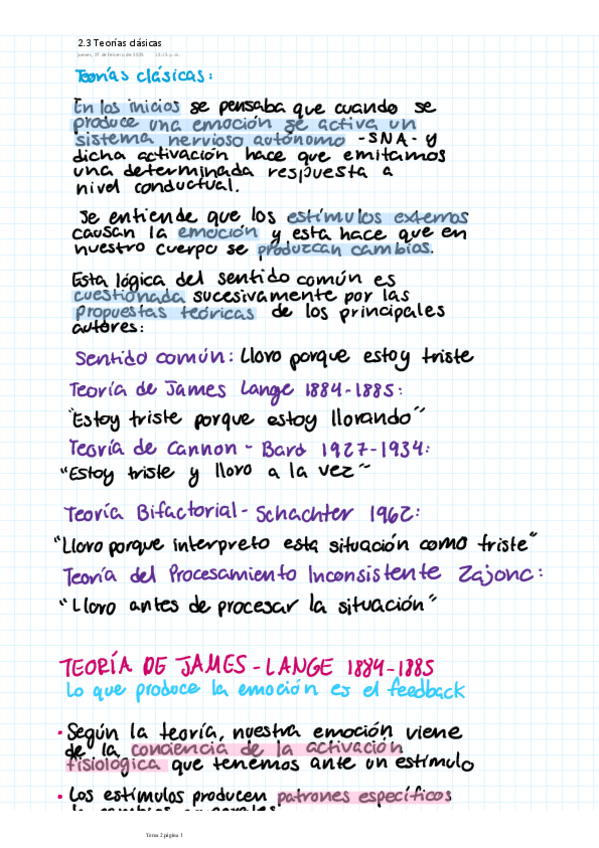 2.3 Teorías clásicas
Teorías clásicas:
En los inicios se pensaba que cuando se
produce una emoción se activa un
sistema nervioso autónomo -SNA- y
dicha activación hace que emitamos
una determinada respuesta a
nivel conductual.
Se entiende que los estímulos externos
causan la emoción y esta hace que en
nuestro cuerpo se produzcan cambios.
Esta lógica del sentido común es
cuestionada sucesivamente por las
propuestas teóricas de los principales
autores:
Sentido común: Lloro porque estoy triste
Teoría de James Lange 1884-1885:
"Estoy triste porque estoy llorando"
Teoría de Cannon - Bard 1927-1934:
"Estoy triste y lloro a la vez"
Teoría Bifactorial - Schachter 1962:
"Lloro porque interpreto esta situación como triste"
Teoría del Procesamiento Inconsistente Zajonc:
"Lloro antes de procesar la situación"
TEORÍA DE JAMES - LANGE 1884-1885
Lo que produce la emoción es el feedback
• Según la teoría, nuestra emoción viene
de la conciencia de la activación
fisiológica que tenemos ante un estímulo
• Los estímulos producen patrones específicos
Tema 2 página 1